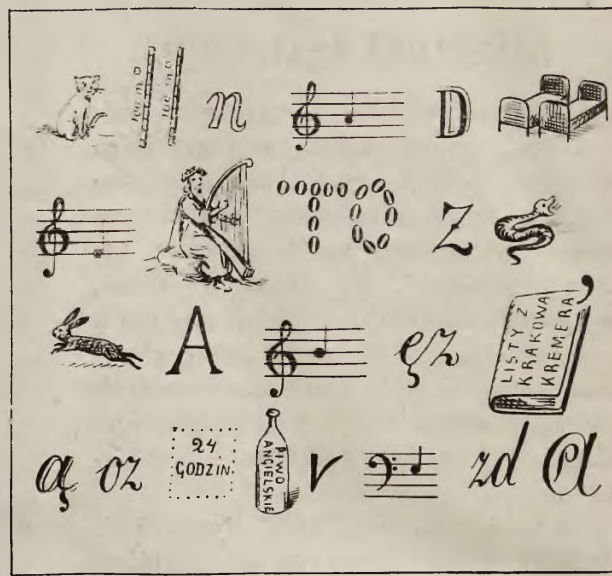 n D
TO Z
A ęz
LISTY Z
KRAKOWA
KREMERA
ą oz
24
GODZIN
PIWO
ANGIELSKIE
r zd a